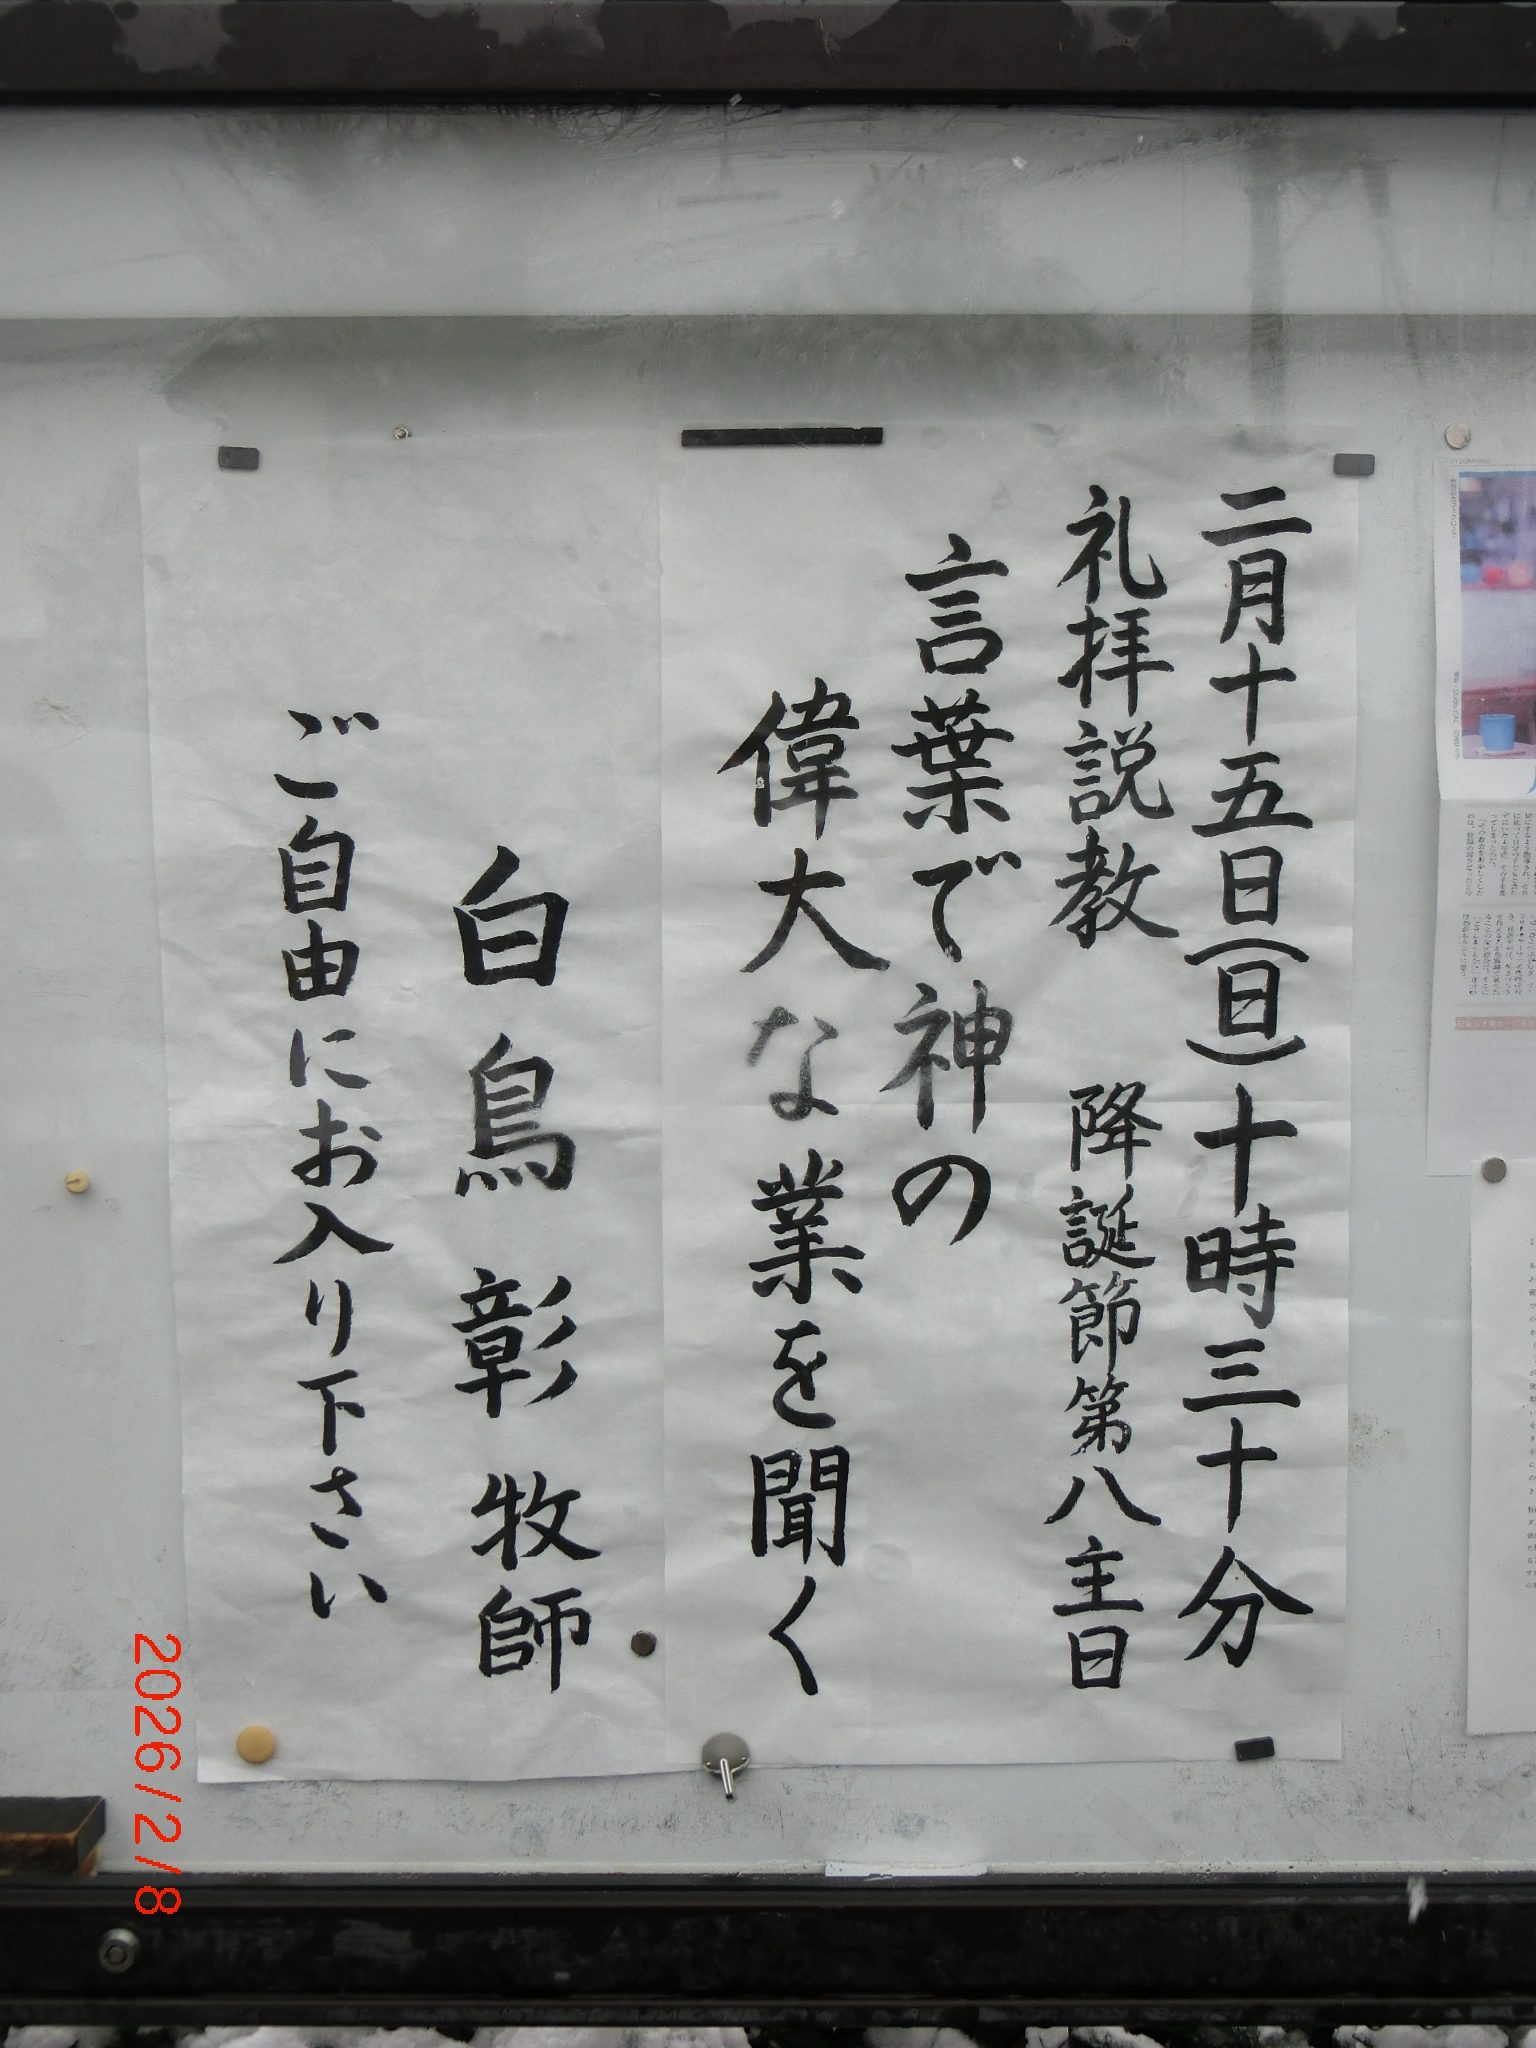 二月十五日(日)十時三十分
礼拝説教 降誕節第八主日
言葉で神の
偉大な業を聞く
白鳥彰牧師
ご自由にお入り下さい
2026/2/8